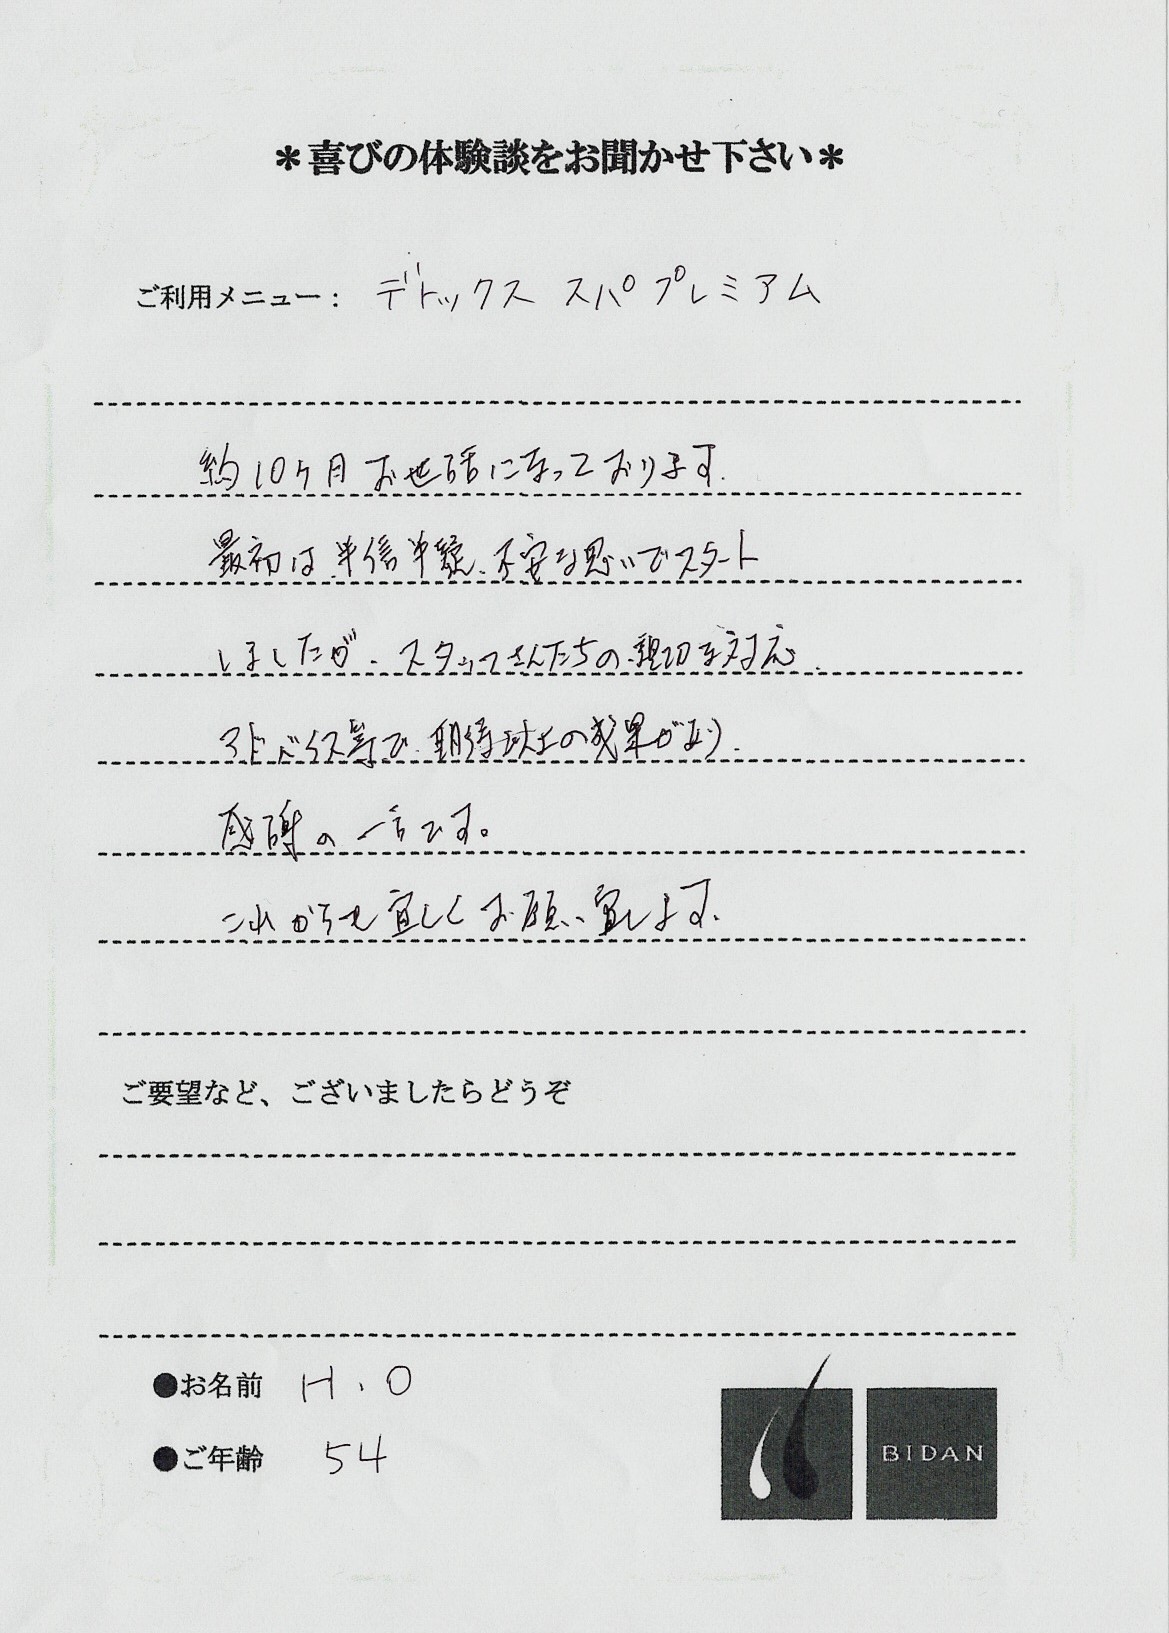 ＊喜びの体験談をお聞かせ下さい＊
ご利用メニュー： デトックス スパ プレミアム
約10ケ月 お世話になっております.
最初は 半信半疑、不安な思いでスタート
しましたが、スタッフさんたちの親切な対応、
アドバイス等で、期待以上の成果があり、
感謝の一言です。
これからも宜しくお願い致します.
ご要望など、ございましたらどうぞ
●お名前 H.O
●ご年齢 54
BIDAN